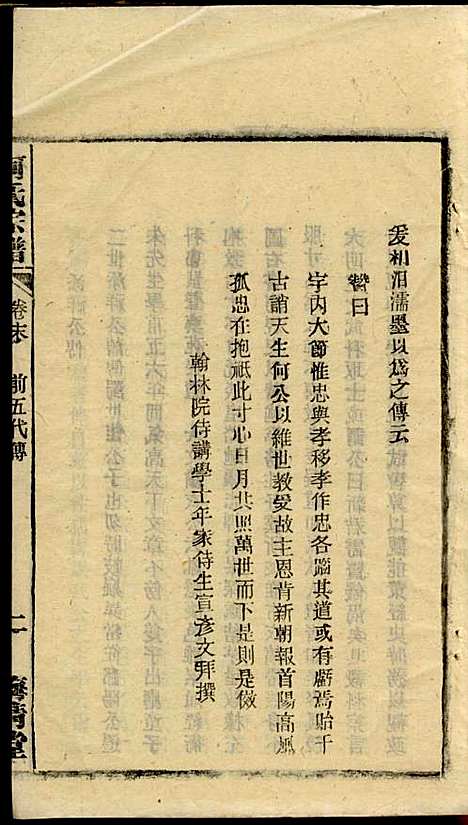 爰和泪濡墨以爲之傳云
贊曰
宇内大節惟忠與孝移孝作忠各蹈其道或有虧焉貽千
古誚天生何公以維世教受故主恩肯新朝報首陽高風
孤忠在抱祇此寸心日月共照萬世而下是則是倣
翰林院侍講學士年家侍生宣彦文拜撰
何氏宗譜
卷末
前五代傳
二
堂